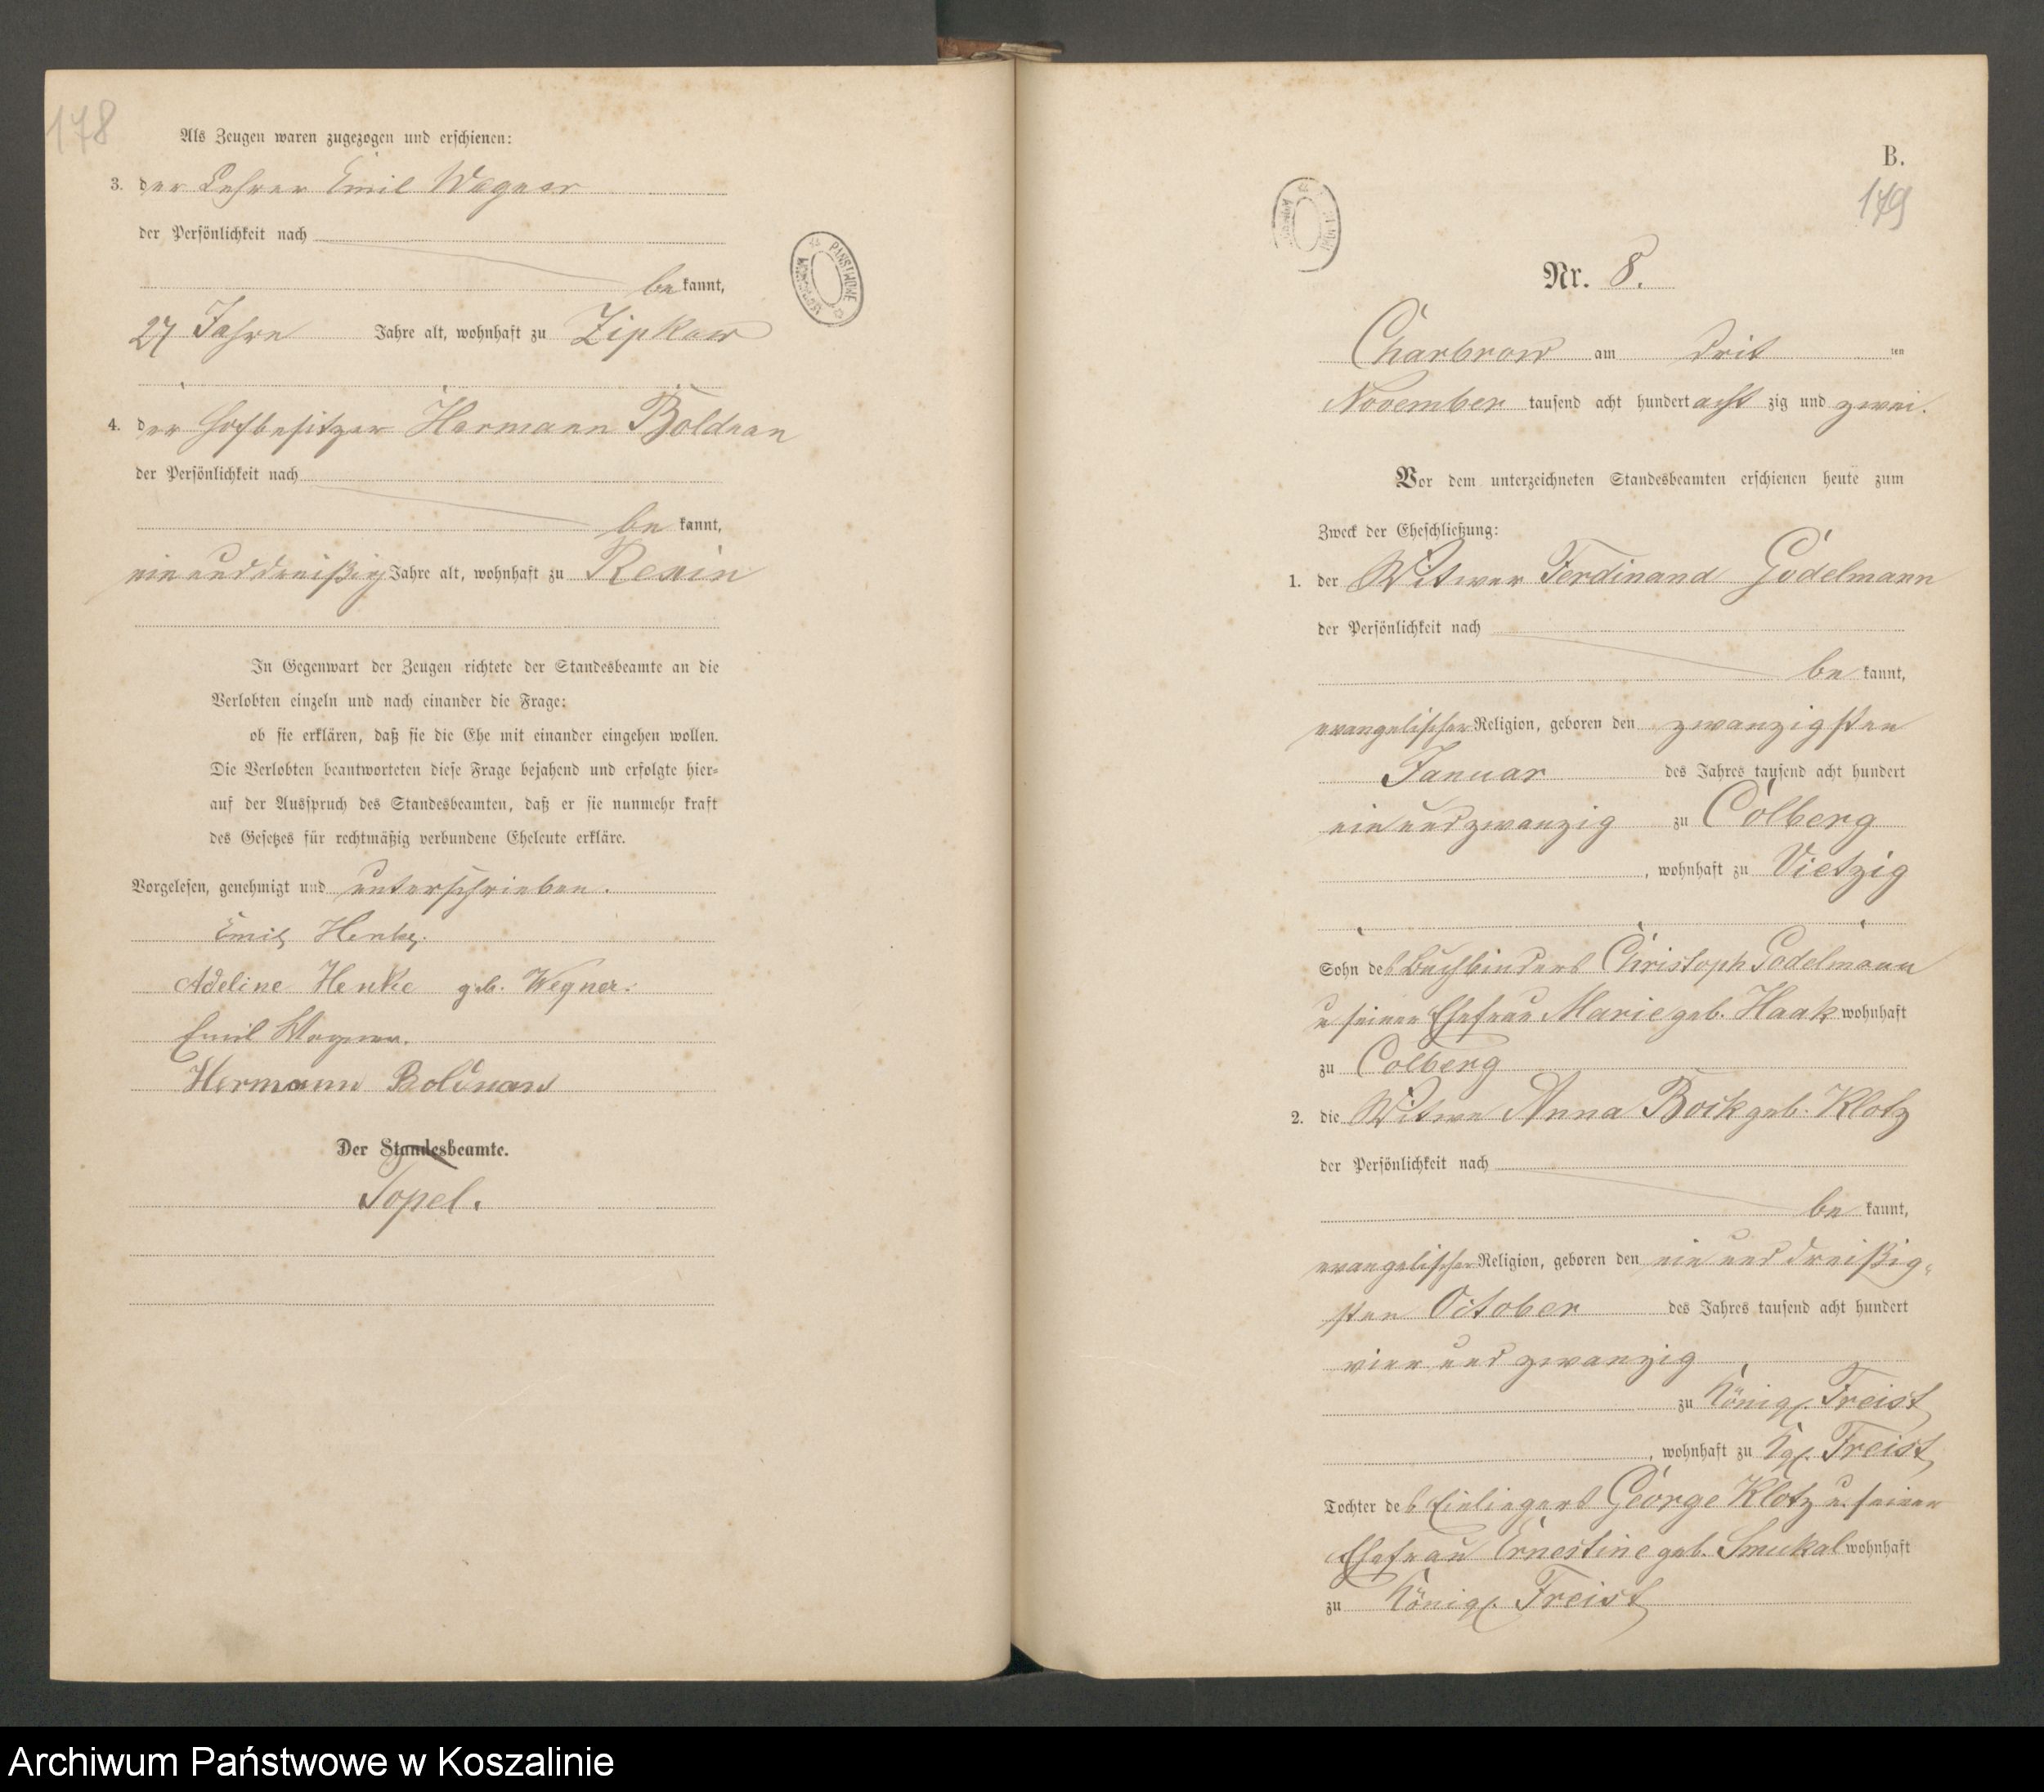 178
Als Zeugen waren zugezogen und erschienen:
3. der Lehrer Emil Wegner
der Persönlichkeit nach
be kannt,
27 Jahre Jahre alt, wohnhaft zu Zipkow
4. der Hofbesitzer Hermann Boldnan
der Persönlichkeit nach
be kannt,
einunddreißig Jahre alt, wohnhaft zu
In Gegenwart der Zeugen richtete der Standesbeamte an die
Verlobten einzeln und nach einander die Frage:
ob sie erklären, daß sie die Ehe mit einander eingehen wollen.
Die Verlobten beantworteten diese Frage bejahend und erfolgte hier-
auf der Ausspruch des Standesbeamten, daß er sie nunmehr kraft
des Gesetzes für rechtmäßig verbundene Eheleute erkläre.
Vorgelesen, genehmigt und unterschrieben.
Emil Henke.
Adeline Henke geb. Wegner.
Emil Wegner.
Hermann Boldnan
Der Standesbeamte.
Topel.
PAŃSTWOWE
B.
179
Nr. 8.
Charbrow am drit ten
November tausend acht hundert acht zig und zwei.
Vor dem unterzeichneten Standesbeamten erschienen heute zum
Zweck der Eheschließung:
1. der Witwer Ferdinand Godelmann
der Persönlichkeit nach
be kannt,
evangelischer Religion, geboren den zwanzigsten
Januar des Jahres tausend acht hundert
einundzwanzig zu Colberg
, wohnhaft zu Vietzig
Sohn des Buchbinders Christoph Godelmann
u seiner Ehefrau Marie geb. Haak wohnhaft
zu Colberg
2. die Witwe Anna Bock geb. Klotz
der Persönlichkeit nach
be kannt,
evangelischer Religion, geboren den ein und dreißig-
sten October des Jahres tausend acht hundert
vier und zwanzig
zu Königl. Freist
, wohnhaft zu Kgl. Freist
Tochter des Einliegers George Klotz u. seiner
Ehefrau Ernestine geb. Smukal wohnhaft
zu Königl. Freist
Archiwum Państwowe w Koszalinie